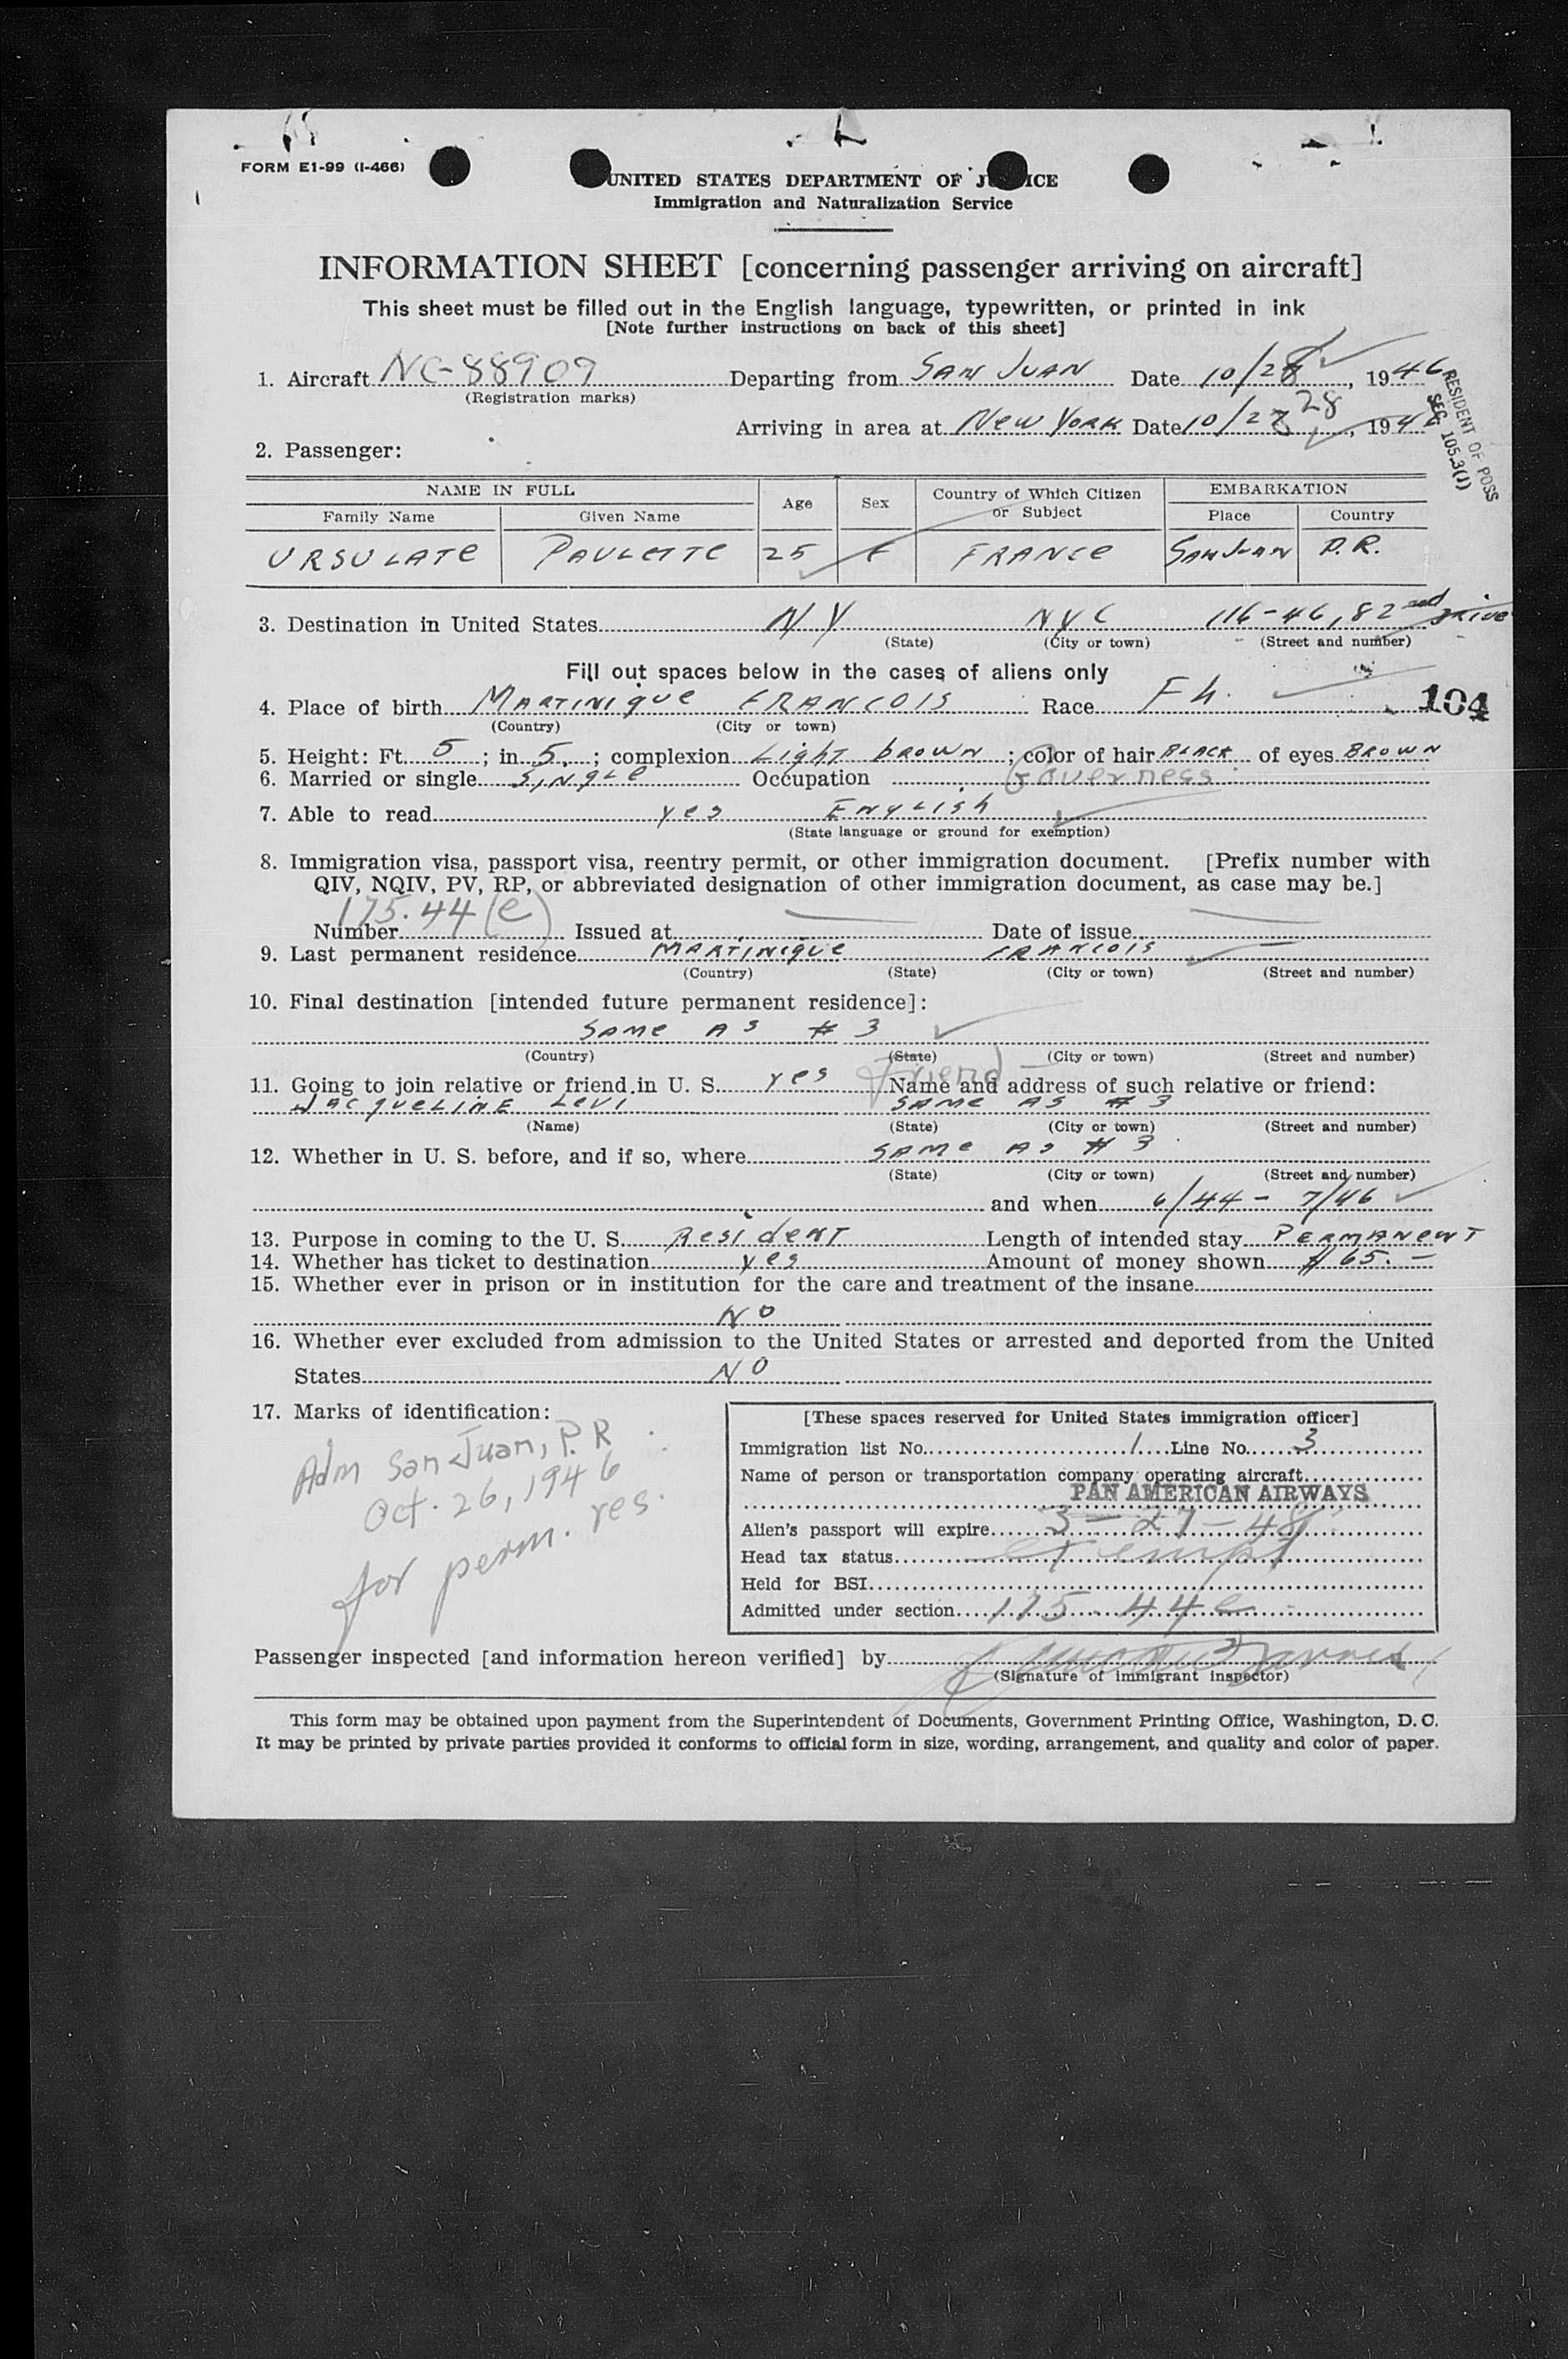 FORM E1-99 (I-466)
UNITED STATES DEPARTMENT OF JUSTICE
Immigration and Naturalization Service
INFORMATION SHEET [concerning passenger arriving on aircraft]
This sheet must be filled out in the English language, typewritten, or printed in ink
[Note further instructions on back of this sheet]
1. Aircraft NC-88909 Departing from SAN JUAN Date 10/28, 1946
(Registration marks)
RESIDENT OF POSS
SEC. 105.3(1)
Arriving in area at New York Date 10/28 28, 194
2. Passenger:
NAME IN FULL Age Sex Country of Which Citizen or Subject EMBARKATION
Family Name Given Name Place Country
URSULATE PAULETTE 25 F FRANCE SAN JUAN P.R.
3. Destination in United States NY NYC 116-46, 82nd Drive
(State) (City or town) (Street and number)
Fill out spaces below in the cases of aliens only
4. Place of birth MARTINIQUE FRANCOIS Race Fh.
(Country) (City or town)
104
5. Height: Ft. 5; in 5.; complexion Light brown; color of hair BLACK of eyes BROWN
6. Married or single SINGLE Occupation Governess
7. Able to read yes ENGLISH
(State language or ground for exemption)
8. Immigration visa, passport visa, reentry permit, or other immigration document. [Prefix number with
QIV, NQIV, PV, RP, or abbreviated designation of other immigration document, as case may be.]
Number 175.44(e) Issued at Date of issue
9. Last permanent residence MARTINIQUE FRANCOIS
(Country) (State) (City or town) (Street and number)
10. Final destination [intended future permanent residence]:
SAME AS # 3
(Country) (State) (City or town) (Street and number)
11. Going to join relative or friend in U. S. yes friend Name and address of such relative or friend:
JACQUELINE LEVI SAME AS # 3
(Name) (State) (City or town) (Street and number)
12. Whether in U. S. before, and if so, where SAME AS # 3
(State) (City or town) (Street and number)
and when 6/44 - 7/46
13. Purpose in coming to the U. S. Resident Length of intended stay PERMANENT
14. Whether has ticket to destination yes Amount of money shown $65.-
15. Whether ever in prison or in institution for the care and treatment of the insane
NO
16. Whether ever excluded from admission to the United States or arrested and deported from the United
States NO
17. Marks of identification:
Adm San Juan, P.R
Oct. 26, 1946
for perm. res.
[These spaces reserved for United States immigration officer]
Immigration list No. 1 Line No. 3
Name of person or transportation company operating aircraft
PAN AMERICAN AIRWAYS
Alien's passport will expire 3-27-48
Head tax status exempt
Held for BSI
Admitted under section 175.44e
Passenger inspected [and information hereon verified] by
(Signature of immigrant inspector)
This form may be obtained upon payment from the Superintendent of Documents, Government Printing Office, Washington, D. C.
It may be printed by private parties provided it conforms to official form in size, wording, arrangement, and quality and color of paper.